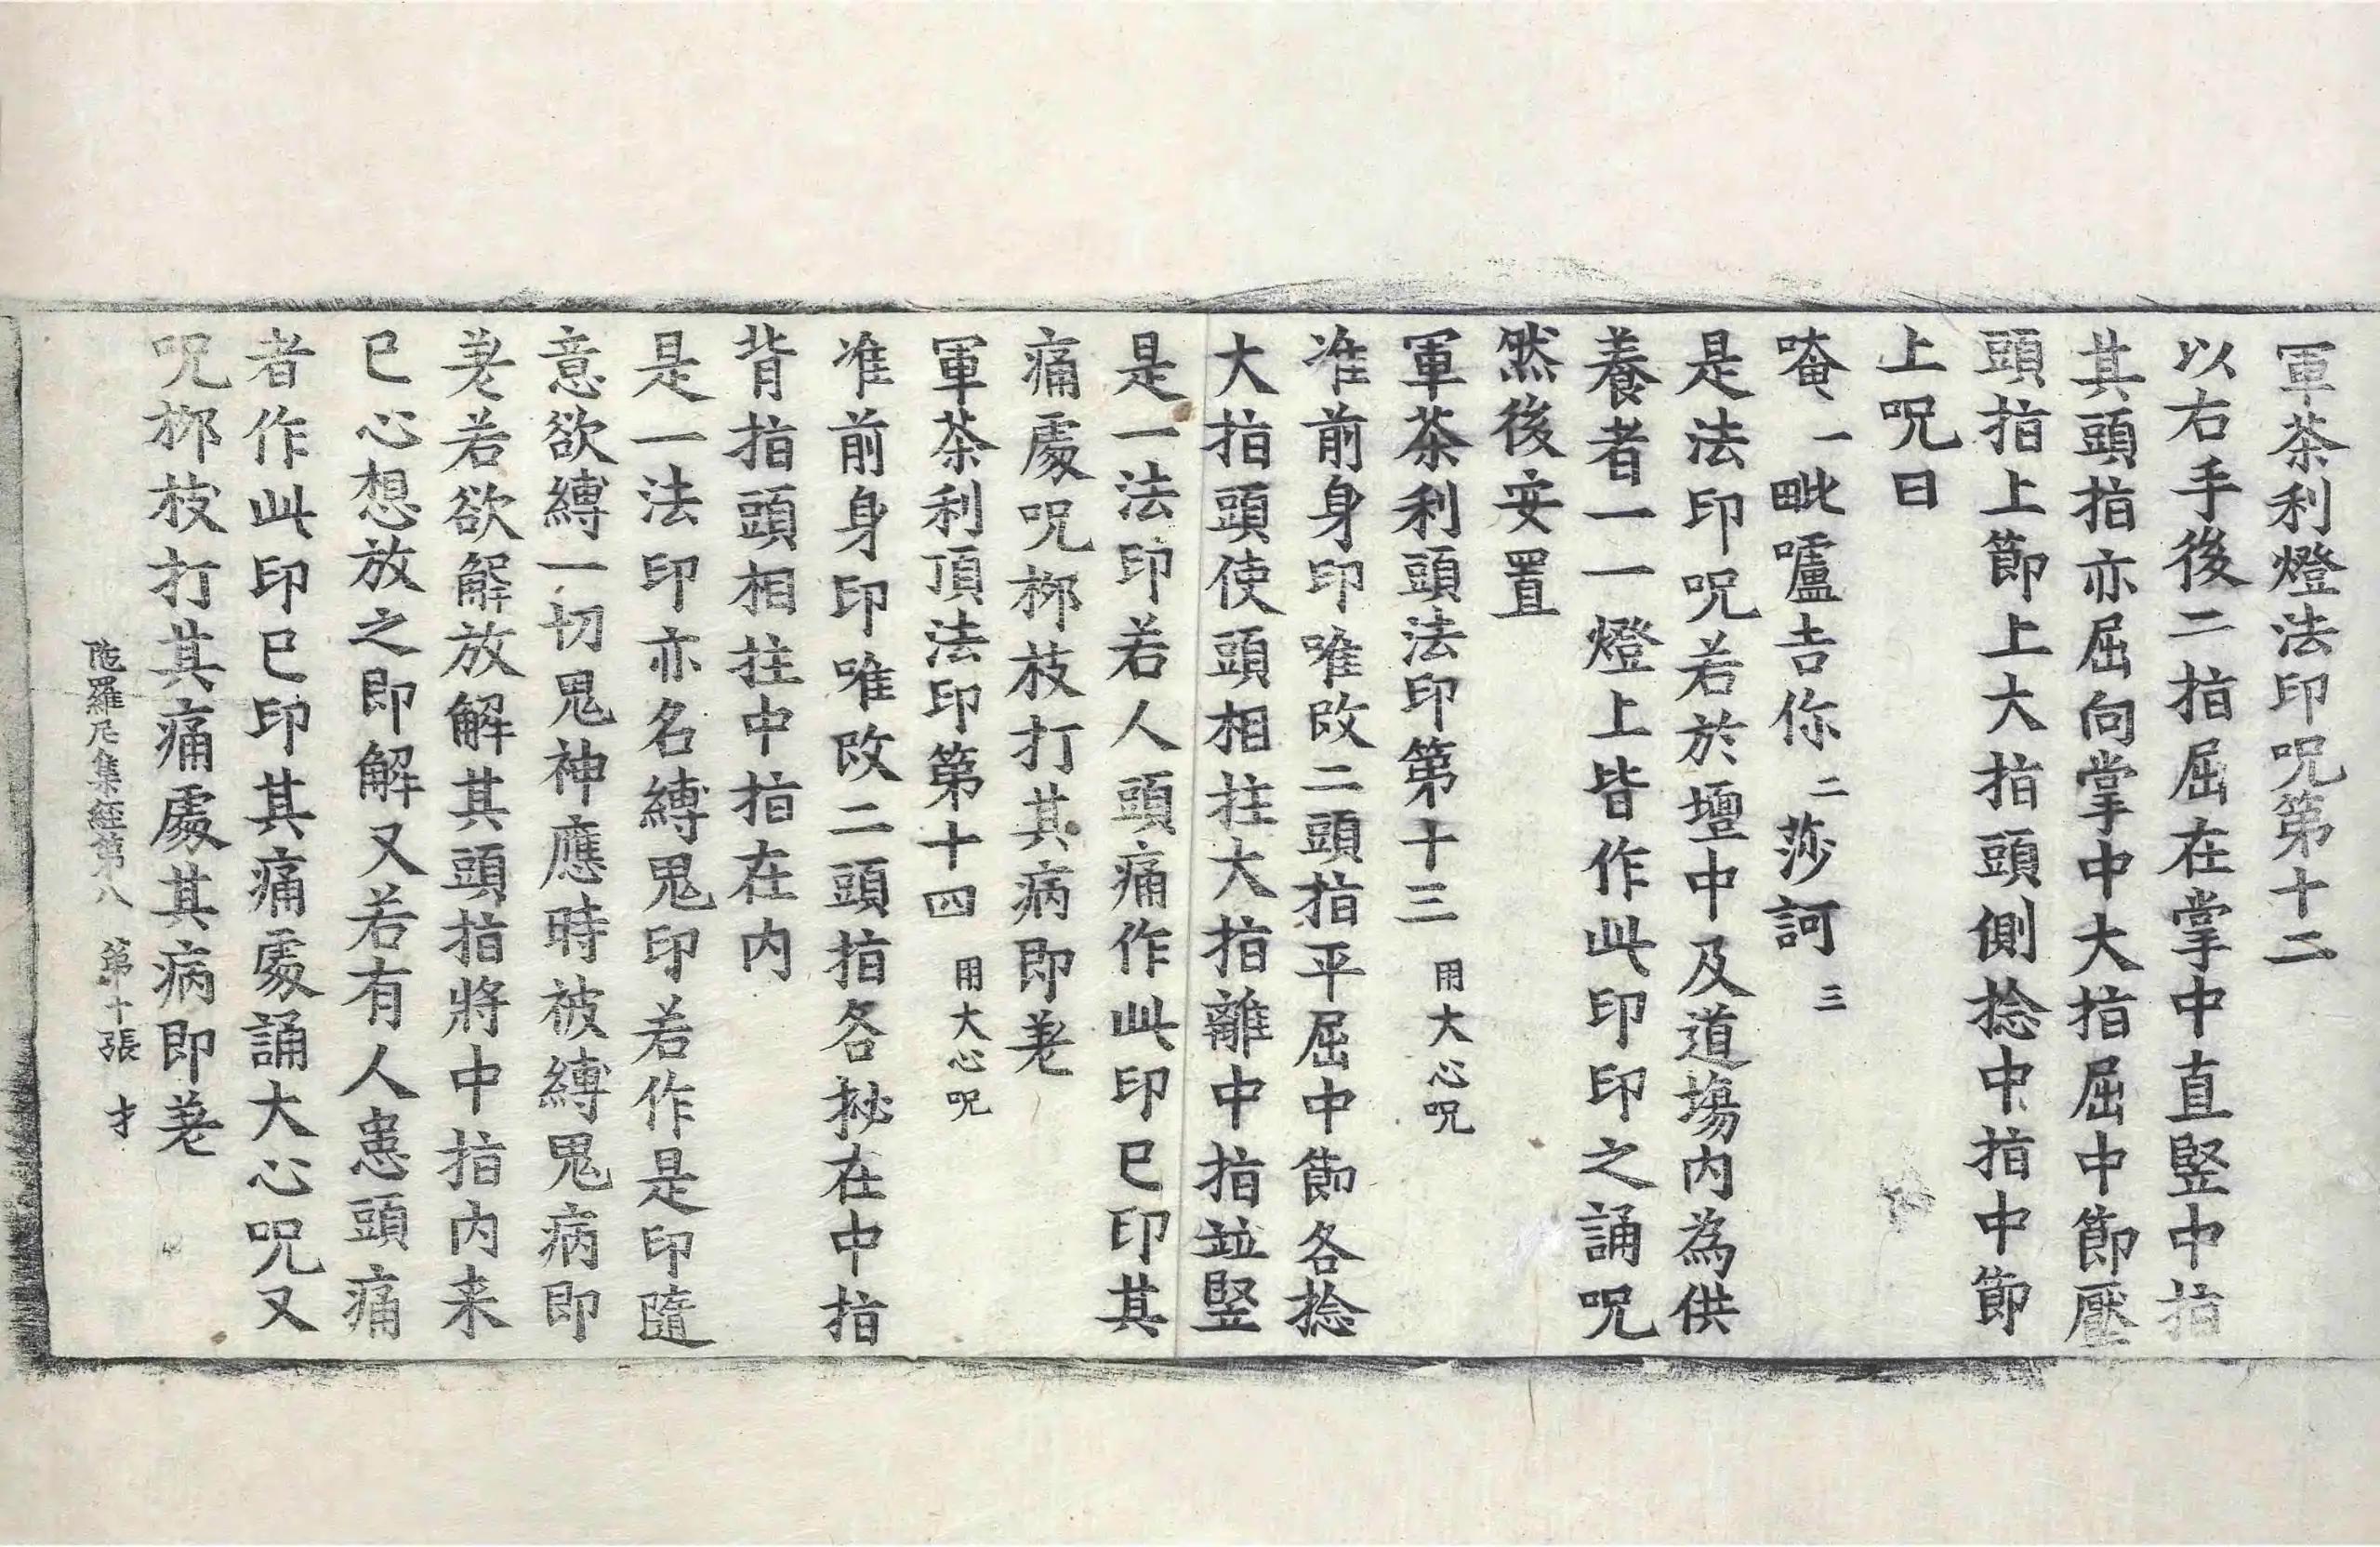 軍茶利燈法印呪第十二
以右手後二指屈在掌中直竪中指
其頭指亦屈向掌中大指屈中節壓
頭指上節上大指頭側捻中指中節
上呪曰
唵一毗嚧吉你二莎訶三
是法印呪若於壇中及道塲内為供
養者一一燈上皆作此印印之誦呪
然後安置
軍茶利頭法印第十三用大心呪
准前身印唯改二頭指平屈中節各捻
大指頭使頭相拄大指離中指竝竪
是一法印若人頭痛作此印已印其
痛處呪桞枝打其病即差
軍茶利頂法印第十四用大心呪
准前身印唯改二頭指各拯在中指
背指頭相拄中指在内
是一法印亦名縛鬼印若作是印隨
意欲縛一切鬼神應時被縛鬼病即
差若欲解放解其頭指將中指内来
已心想放之即解又若有人患頭痛
者作此印已印其痛處誦大心呪又
呪桞枝打其痛處其病即差
陁羅尼集經第八 第十張 才